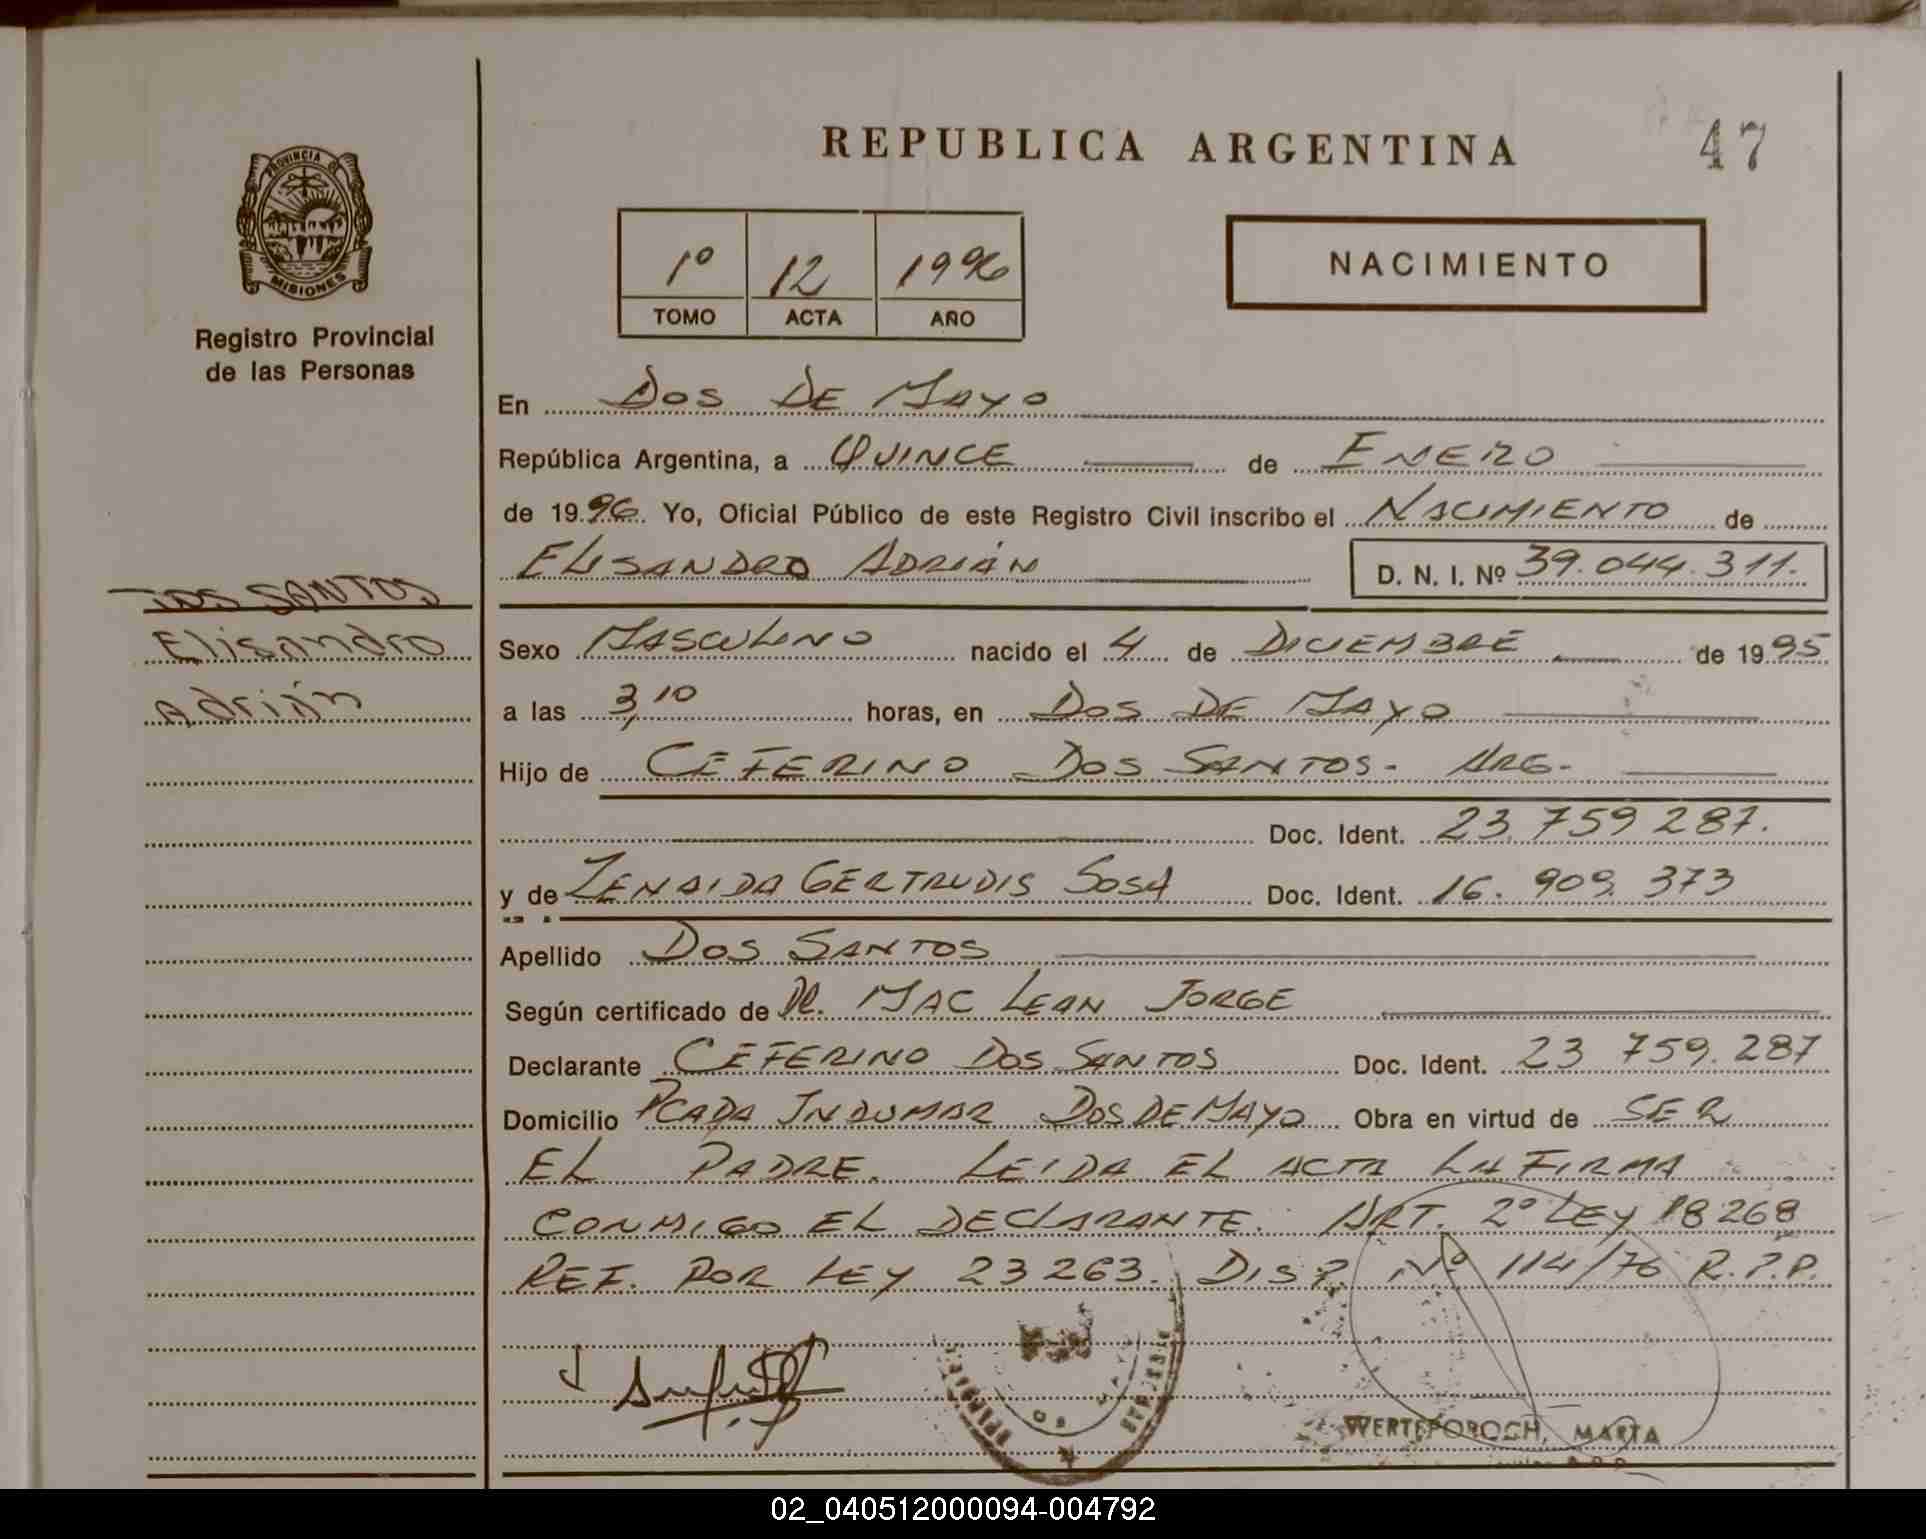 REPUBLICA ARGENTINA
47
PROVINCIA DE
MISIONES
Registro Provincial
de las Personas
1º 12 1996
TOMO ACTA AÑO
NACIMIENTO
En DOS DE MAYO
República Argentina, a QUINCE de ENERO
de 1996. Yo, Oficial Público de este Registro Civil inscribo el NACIMIENTO de
ELISANDRO ADRIÁN D. N. I. Nº 39.044.311.
DOS SANTOS
Elisandro
Adrián
Sexo MASCULINO nacido el 4 de DICIEMBRE de 1995
a las 3,10 horas, en DOS DE MAYO
Hijo de CEFERINO DOS SANTOS- ARG-
Doc. Ident. 23.759 287.
y de ZENAIDA GERTRUDIS SOSA Doc. Ident. 16. 909. 373
Apellido DOS SANTOS
Según certificado de DR. MAC LEAN JORGE
Declarante CEFERINO DOS SANTOS Doc. Ident. 23 759. 287
Domicilio PCADA INDUMAR DOS DE MAYO Obra en virtud de SER
EL PADRE. LEIDA EL ACTA LA FIRMA
CONMIGO EL DECLARANTE. ART. 2º LEY 18268
REF. POR LEY 23263. DISP. Nº 114/76 R.P.P.
WERTEPOROCH, MARTA
02_040512000094-004792